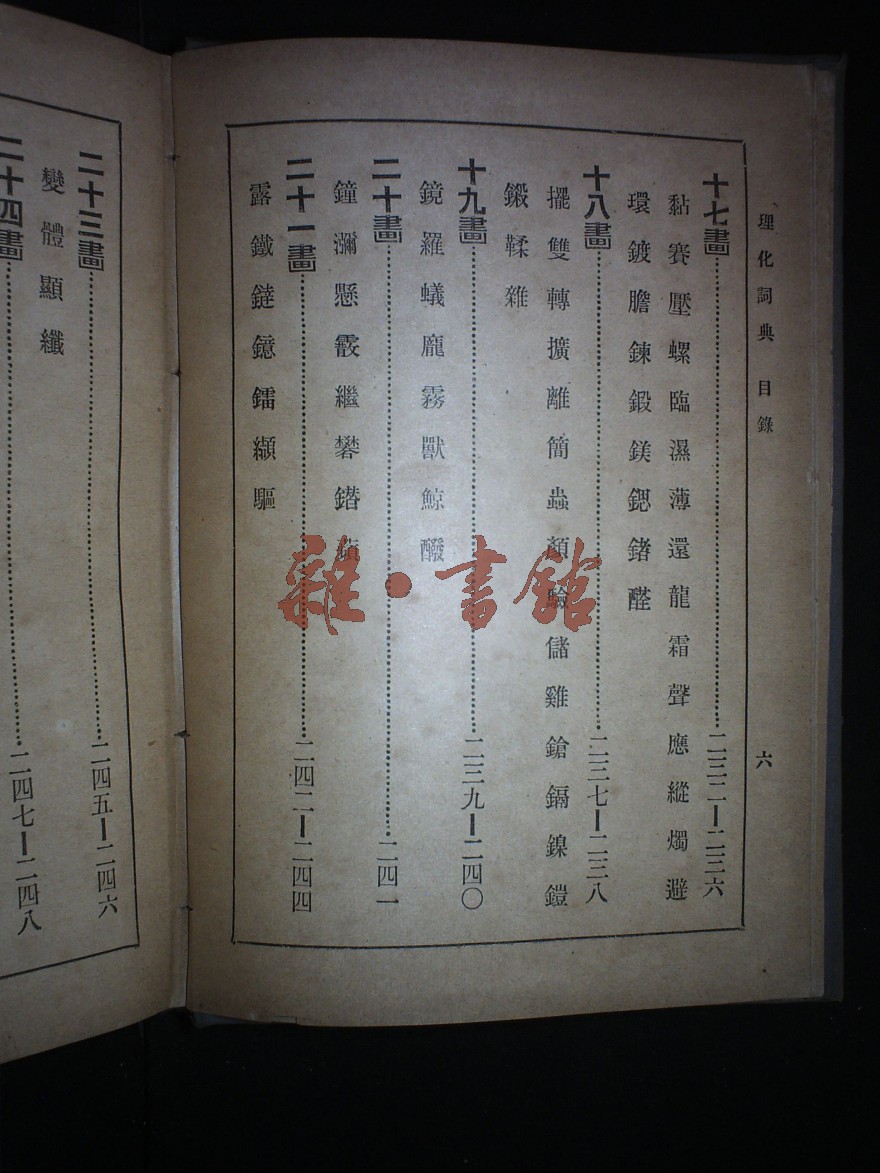 理化詞典 目錄 六
十七畫……二三二—二三六
黏賽壓螺臨濕薄還龍霜聲應縱燭避
環鍍膽鍊鍛鎂鍶鍺醛
十八畫……二三七—二三八
擺雙轉擴離簡蟲顏驗儲雞鎗鎘鎳鎧
鍛鞣雜
十九畫……二三九—二四〇
鏡羅蟻龐霧獸鯨醱
二十畫……二四一
鐘瀰懸霰繼礬鐠
二十一畫……二四二—二四四
露鐵鐽鐿鐳纈驅
二十三畫……二四五—二四六
變體顯纖
二十四畫……二四七—二四八
雜·書館